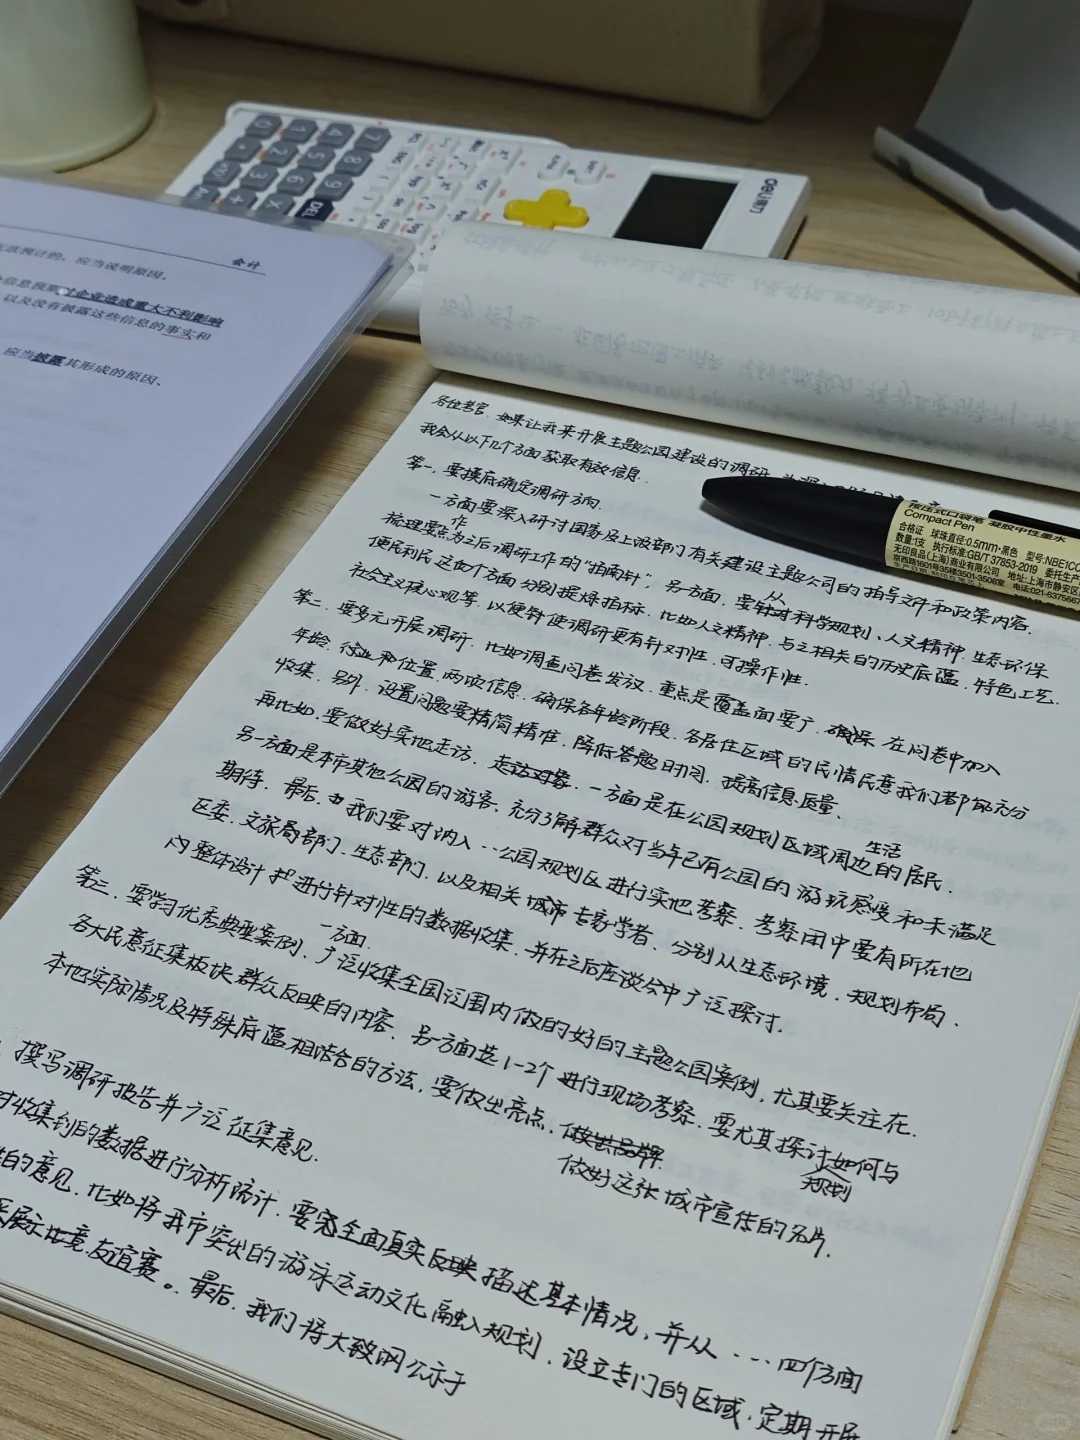 deli 得力
DEL
会计
应当说明原因。
对企业造成重大不利影响
以及没有披露这些信息的事实和
应当披露其形成的原因、
各位考官，如果让我来开展主题公园建设的调研
我会从以下几个方面获取有效信息.
第一、要摸底确定调研方向.
一方面要深入研讨国务及上级部门有关建设主题公司的指导文件和政策内容.
梳理要点作为之后调研工作的“指南针”，另方面，要从科学规划、人文精神、生态环保
便民利民这四个方面分别提炼指标，比如人文精神，与之相关的历史底蕴、特色工艺.
社会主义核心观等，以便针使调研更有针对性、可操作性.
第二、要多元开展调研，比如调查问卷发放，重点是覆盖面要广，在问卷中加入
年龄、行业和位置两项信息，确保各年龄阶段、各居住区域的民情民意我们都能充分
收集，另外，设置问题要精简精准，降低答题时间，提高信息质量.
再比如，要做好实地走访，走访对象，一方面是在公园规划区域周边生活的居民.
另一方面是本市其他公园的游客，充分了解群众对当年已有公园的游玩感受和未满足
期待，最后，我们要对纳入...公园规划区进行实地考察，考察团中要有所在地
区委、文旅局部门、生态部门，以及相关城市专家学者，分别从生态环境、规划布局、
内整体设计进行针对性的数据收集，并在之后座谈会中广泛探讨.
第三、要学习优秀典型案例，一方面，广泛收集全国范围内做的好的主题公园案例，尤其要关注在.
各大民意征集板块群众反映的内容，另方面选1-2个进行现场考察，要尤其探讨如何与规划
本地实际情况及特殊底蕴相结合的方法，要做出亮点，做出品牌
做好这张城市宣传的名片.
撰写调研报告并广泛征集意见.
对收集到的数据进行分析统计，要完全面真实反映描述基本情况，并从...四个方面
的意见，比如将我市突出的游泳运动文化融入规划，设立专门的区域，定期开展
友谊赛。最后，我们将大致网公示于
按压式口袋笔 凝胶中性墨水
Compact Pen
合格证 球珠直径:0.5mm·黑色 型号:NBE1C0
数量:1支 执行标准:GB/T 37853-2019 委托生产
无印良品(上海)商业有限公司 地址:上海市静安区
京西路1601号35楼3501-3508室 电话:021-6375667